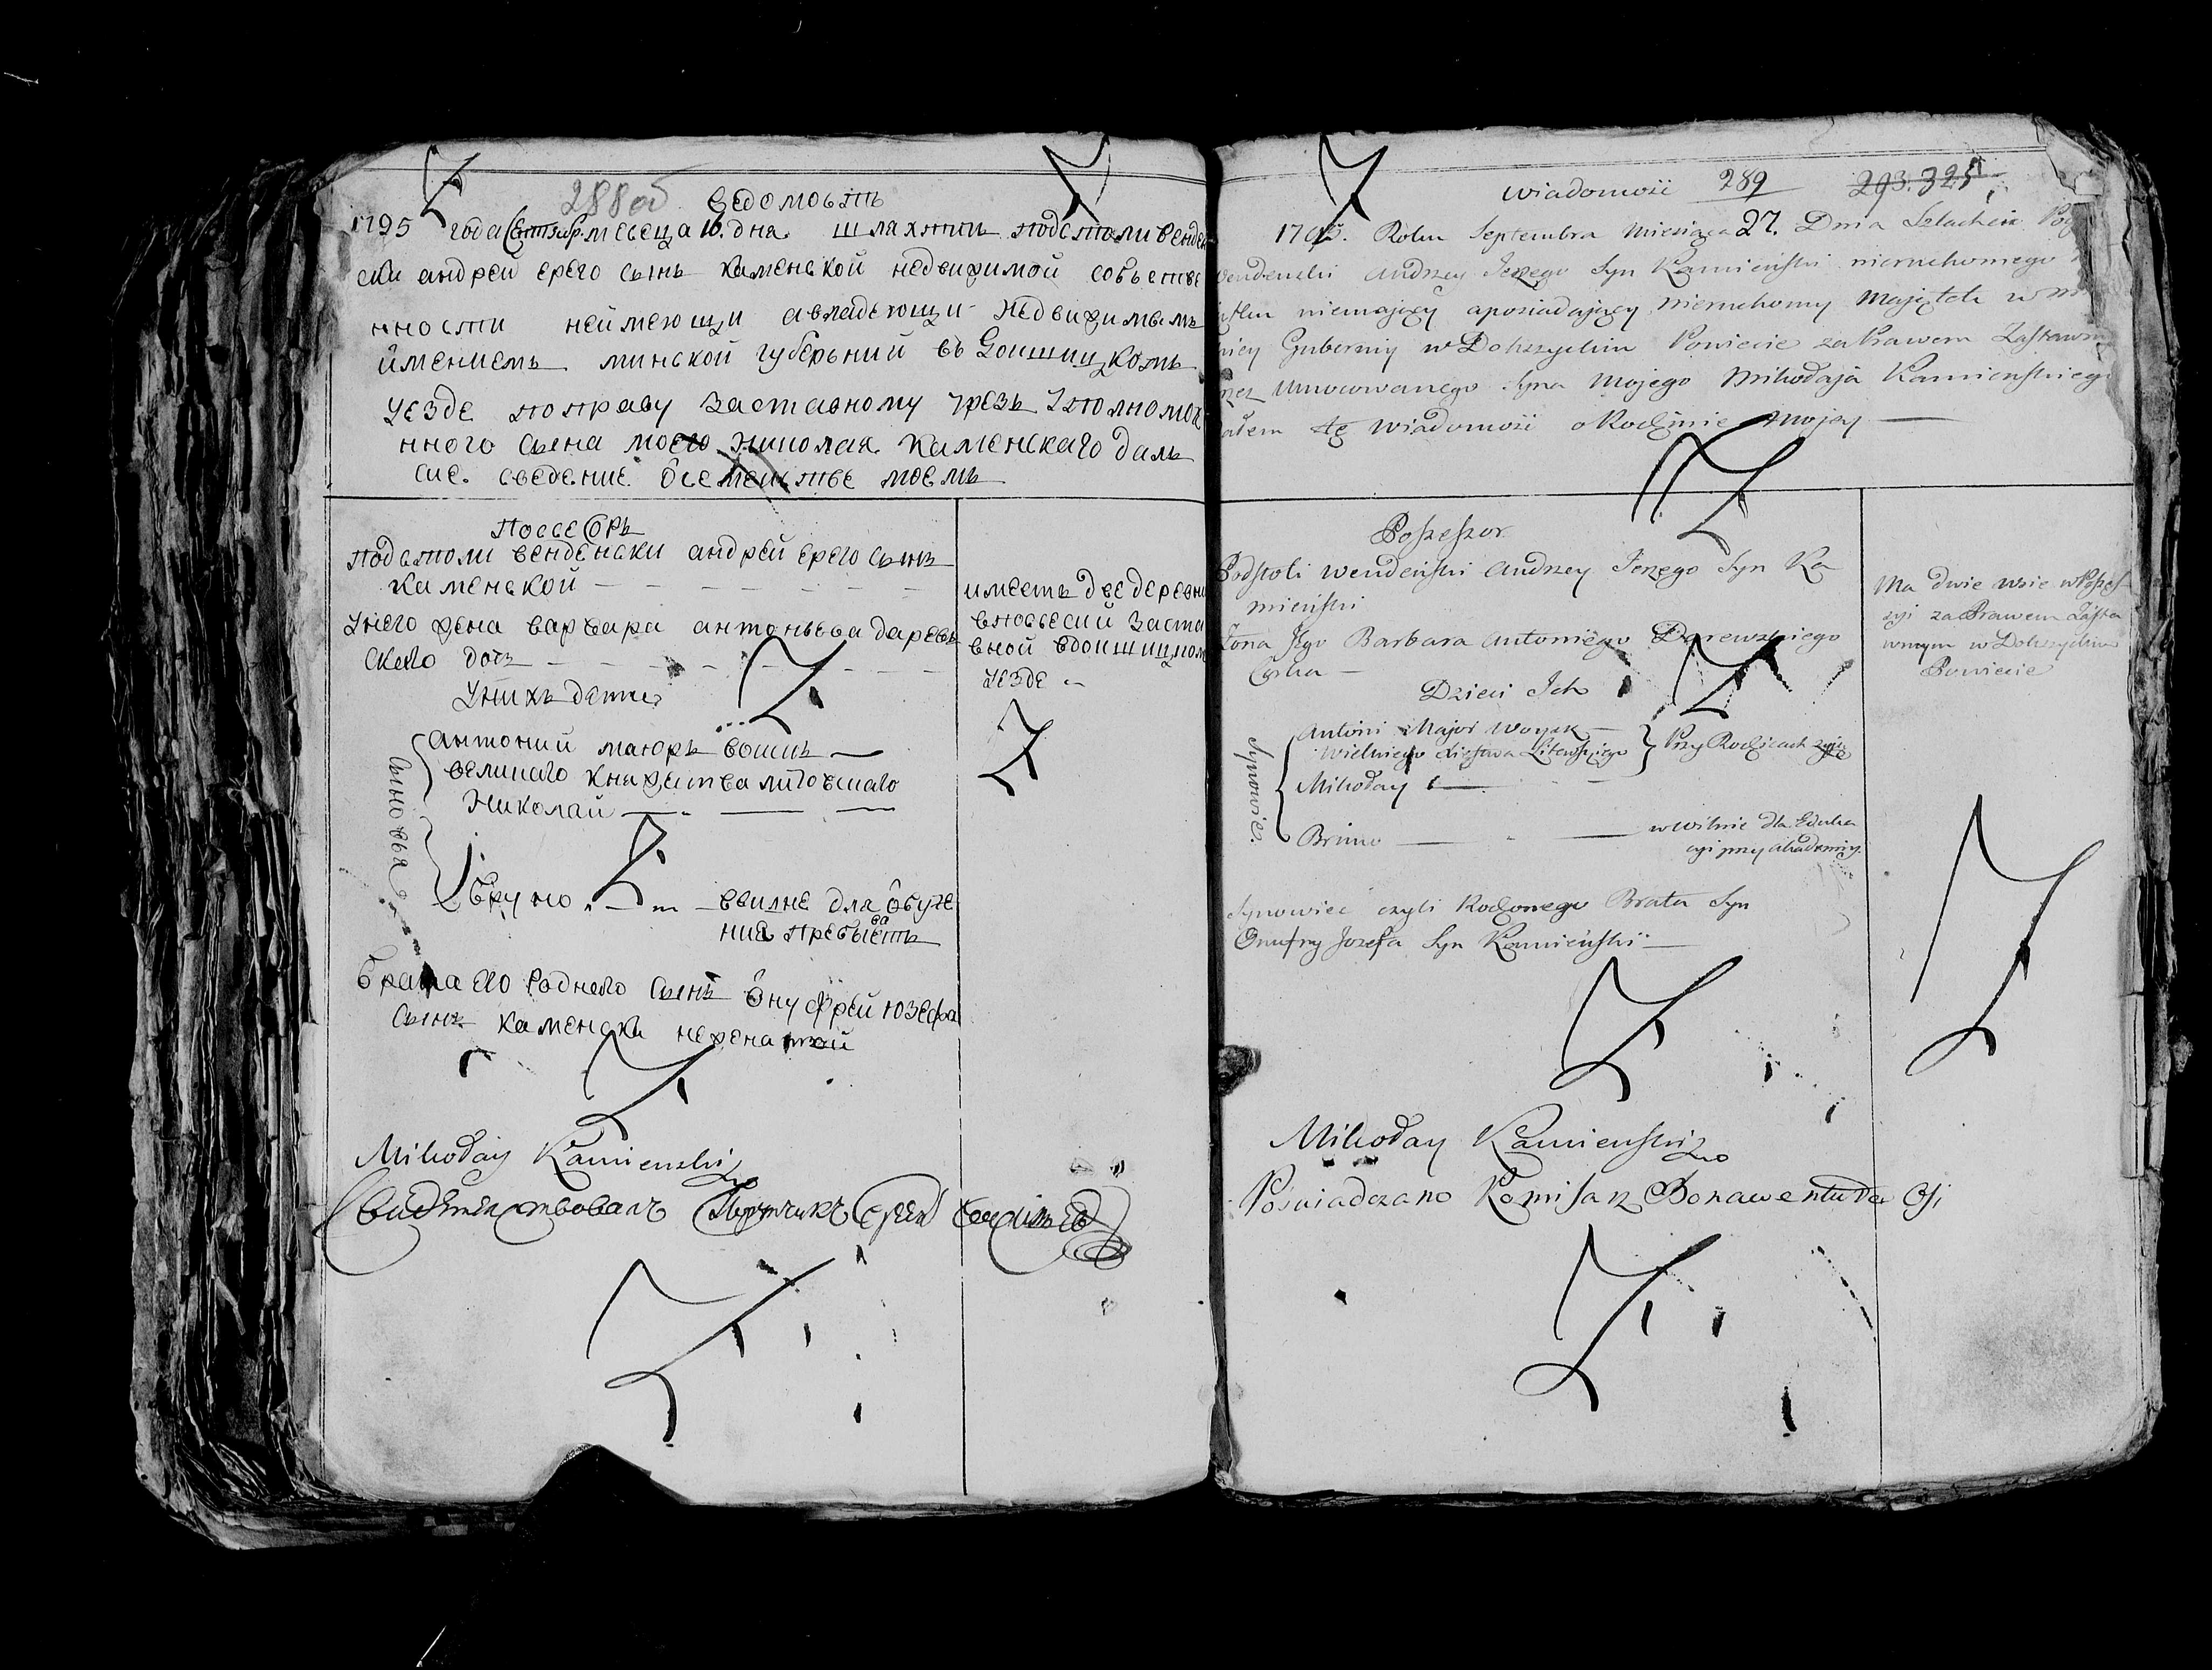 288 об
ведомость
1795 года Сентяб. месеца 16. дня шляхтичь подстоли венден
ски андрей ерего сынъ каменьской недвижимой собьстве
нности неймеющи авладеющи недвижимымъ
имениемъ минской губерьний въ Докшицкомъ
уезде поправу заставному чрезь уполномоч
нного сына моего николая каменскаго далъ
сие сведение осемеистве моемъ
поссесоръ
подстоли венденьски андрей ерего сынъ
каменьской
унего жена варвара антоньева даревъ
ского дочь
унихъ дети
сыновья
антоний маюръ воискъ
великаго княжества литовъскаго
николай
бруно ввилне для обуче
ния пребывaеть
брата его роднего сынъ онуфрей юзефа
сынъ каменски неженатой
имееть две деревни
вповьесии заста
вной вдокшицком
уезде
Mikołay Kamienski
Свидѣтелствовалъ Порутчикъ
wiadomość 289 293. 325
1795. Roku Septembra Miesiąca 27. Dnia Szlachcic
wendenski Andrzey Jerzego Syn Kamieński nieruchomego
niemający aposiadający nieruchomy Majątek w
Gubernij w Dokszyckim Powiecie zaPrawem Zastawnym
przez Umocowanego Syna Mojego Mikołaja Kamienskiego
dałem tę wiadomość oRodzinie Mojey
Possessor
Podstoli wendeński Andrzey Jerzego Syn Ka
mieński
Żona Jego Barbara Antoniego Darewskiego
Corka
Dzieci Ich
Synowie
Antoni Major Woysk
Wielkiego Xięstwa Litewskiego Przy Rodzicach żyją
Mikołay
Bruno wWilnie dla Eduka
cyi przy Akademij
Synowiec czyli Rodzonego Brata Syn
Onufry Jozefa Syn Kamieński
Ma dwie wsie wPosses
syi zaPrawem Zasta
wnym w Dokszyckim
Powiecie
Mikołay Kamienski
Poswiadczano Komisarz Bonawentura